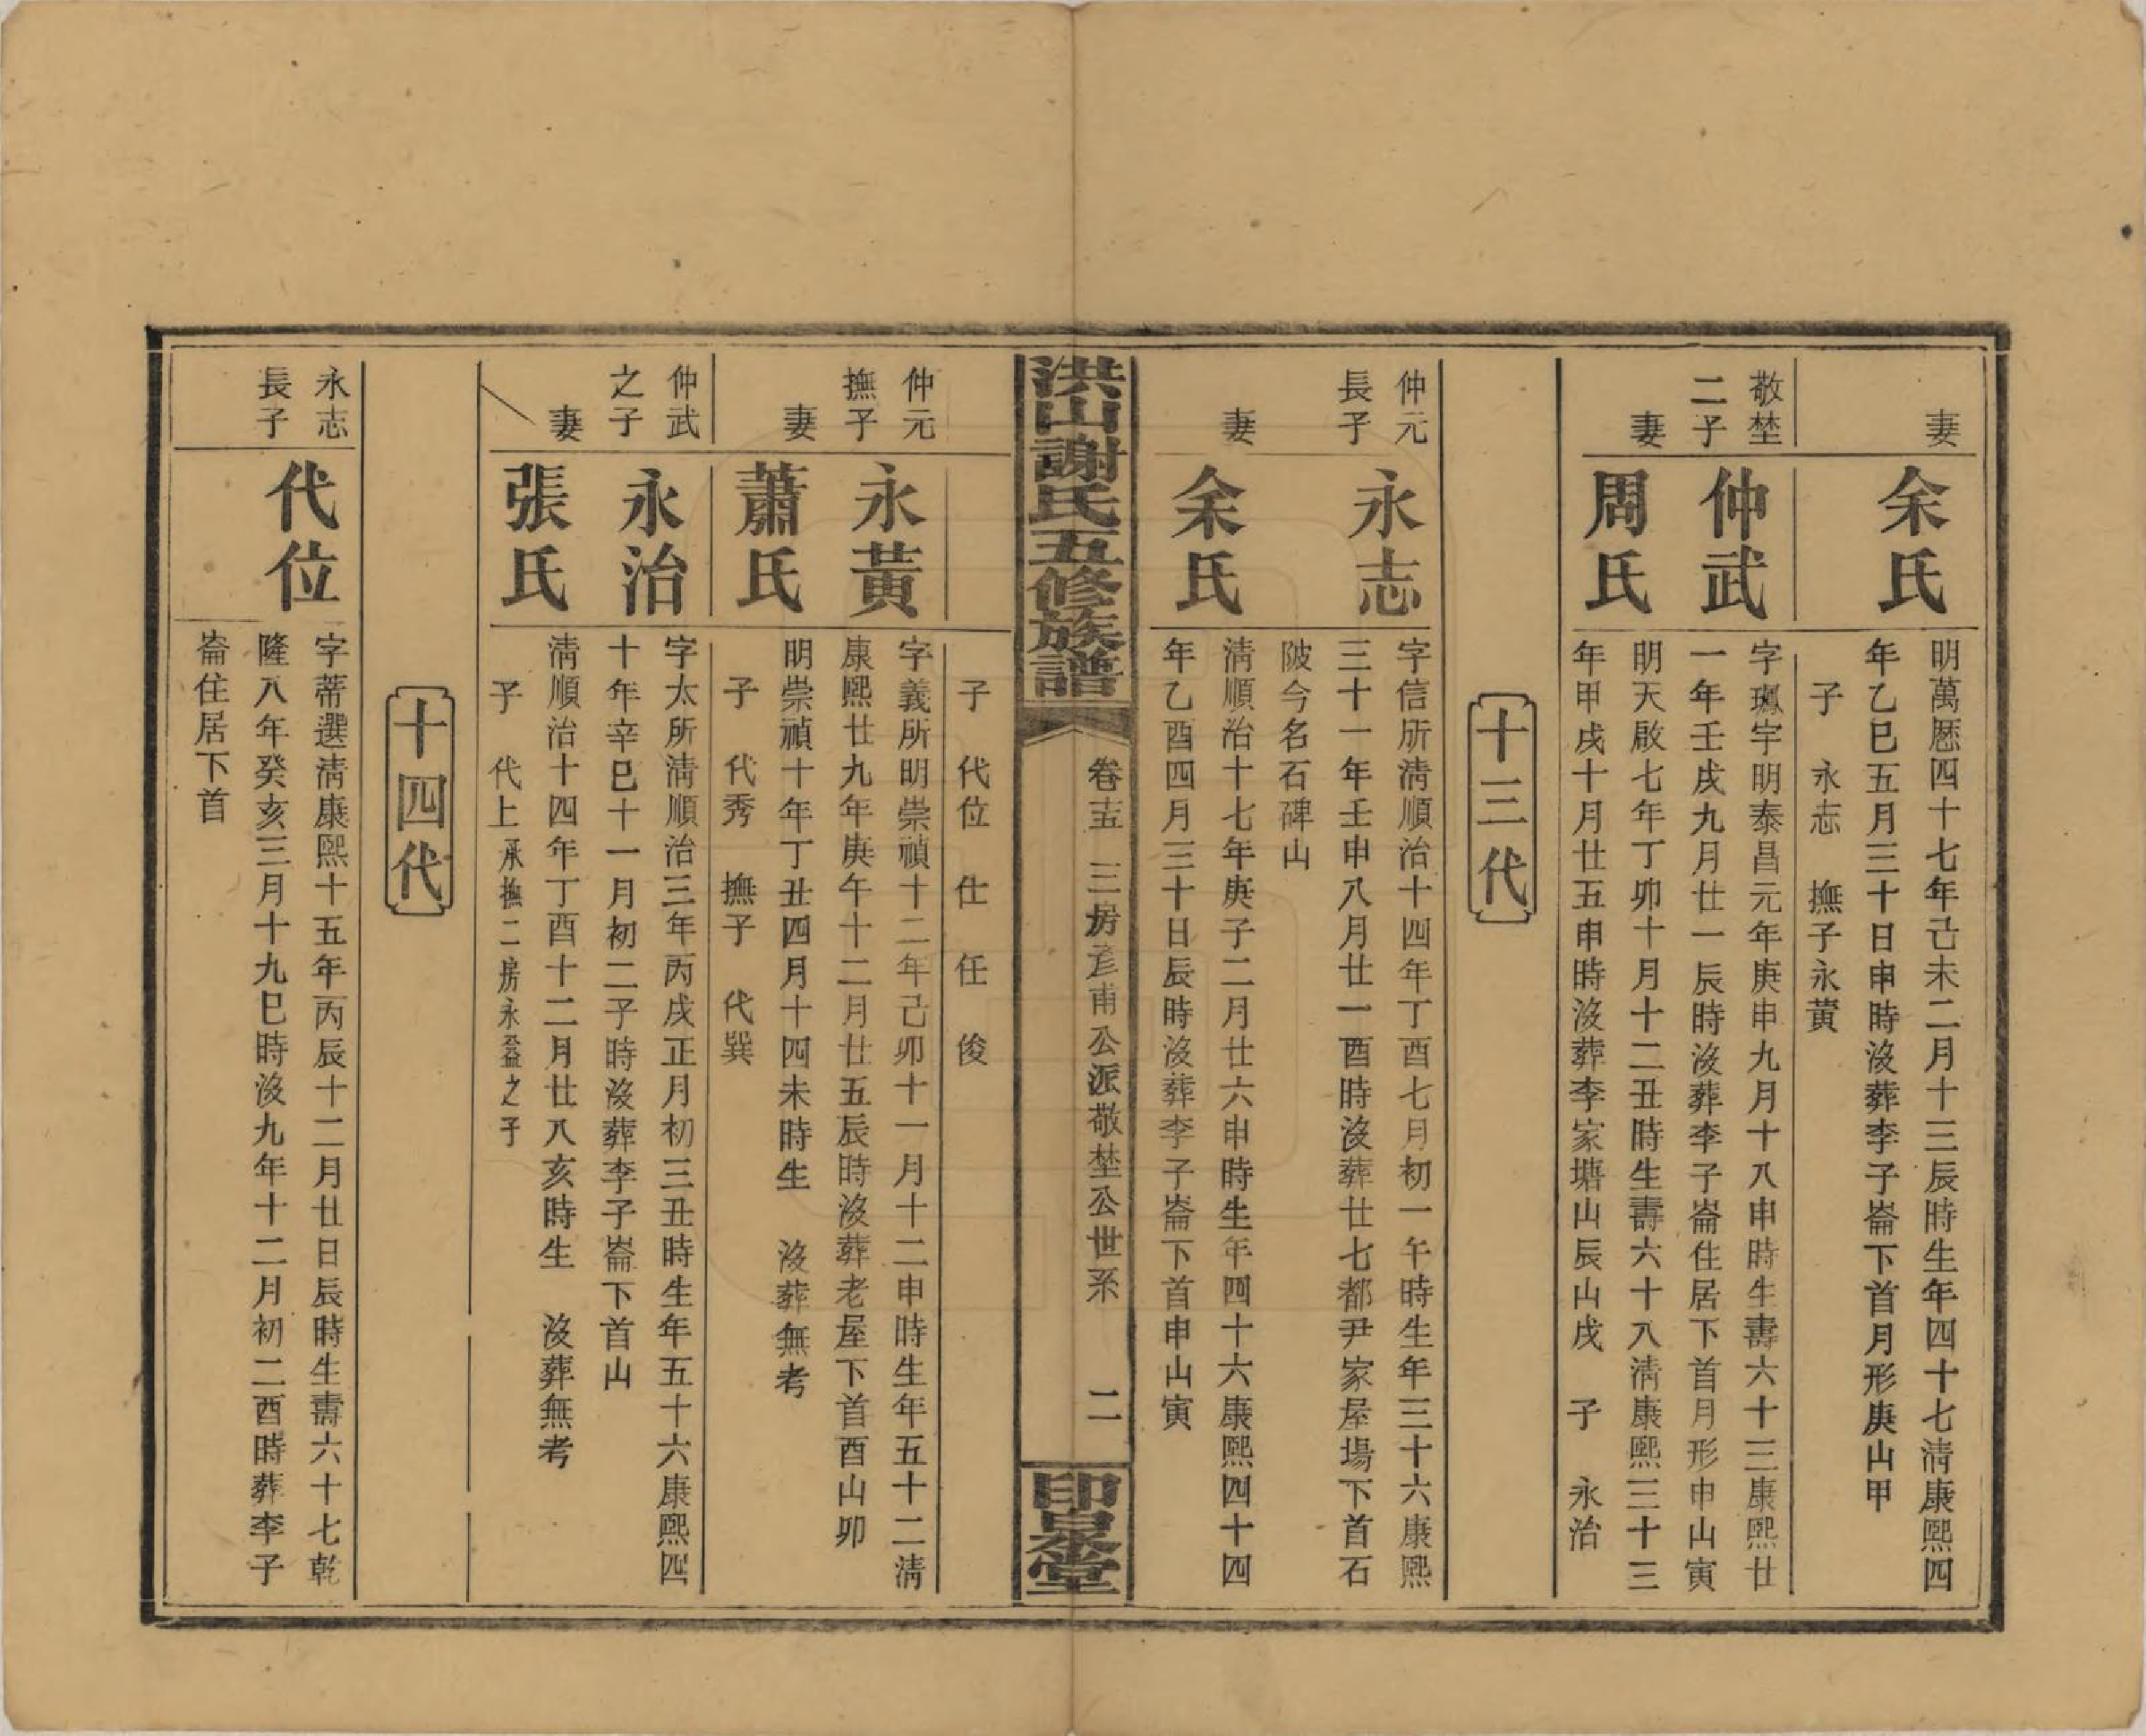 妻
余氏
明萬厯四十七年己未二月十三辰時生年四十七清康熙四
年乙巳五月三十日申時沒葬李子崙下首月形庚山甲
子 永志 撫子永黃
敬埜
二子
仲武
字 宇明泰昌元年庚申九月十八申時生壽六十三康熙廿
一年壬戌九月廿一辰時沒葬李子崙住居下首月形申山寅
妻
周氏
明天啟七年丁卯十月十二丑時生壽六十八清康熙三十三
年甲戌十月廿五申時沒葬李家塘山辰山戌 子 永治
十三代
仲元
長子
永志
字信所清順治十四年丁酉七月初一午時生年三十六康熙
三十一年壬申八月廿一酉時沒葬廿七都尹家屋場下首石
陂今名石碑山
妻
余氏
清順治十七年庚子二月廿六申時生年四十六康熙四十四
年乙酉四月三十日辰時沒葬李子崙下首申山寅
洪山謝氏五修族譜
卷十五 三房彦甫公派敬埜公世系 二
印泉堂
子 代位 仕 任 俊
仲元
撫子
永黃
字義所明崇禎十二年己卯十一月十二申時生年五十二清
康熙廿九年庚午十二月廿五辰時沒葬老屋下首酉山卯
妻
蕭氏
明崇禎十年丁丑四月十四未時生 沒葬無考
子 代秀 撫子 代巽
仲武
之子
永治
字太所清順治三年丙戌正月初三丑時生年五十六康熙四
十年辛巳十一月初二子時沒葬李子崙下首山
妻
張氏
清順治十四年丁酉十二月廿八亥時生 沒葬無考
子 代上承撫二房永盈之子
十四代
永志
長子
代位
字蒂選清康熙十五年丙辰十二月廿日辰時生壽六十七乾
隆八年癸亥三月十九巳時沒九年十二月初二酉時葬李子
崙住居下首